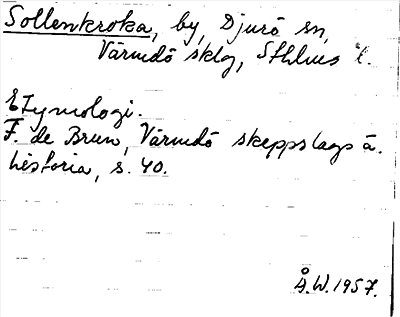 Sollenkroka, by, Djurö sn,
Värmdö sklg, Sthlms l.
Etymologi.
F. de Brun, Värmdö skeppslags ä.
historia, s. 40.
Å.W. 1957.